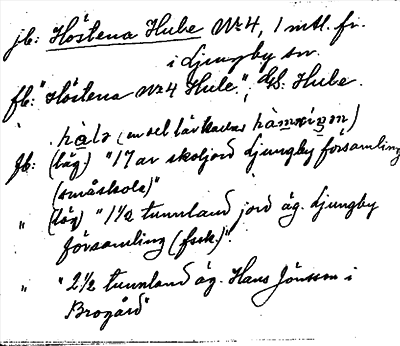 jb: Höstena Hube Nr 4, 1 mtl. fr.
i Ljungby sn.
fb: "Höstena Nr 4 Hule", GS. Hube.
. hàlə (en del lärkarlar
fb: (läg) "17 ar skoljord Ljungby församling
(småskola)"
" (läg) "1 1/2 tunnland jord äg. Ljungby
församling (fsk.)".
" "2 1/2 tunnland äg. Hans Jönsson i
Brogård"